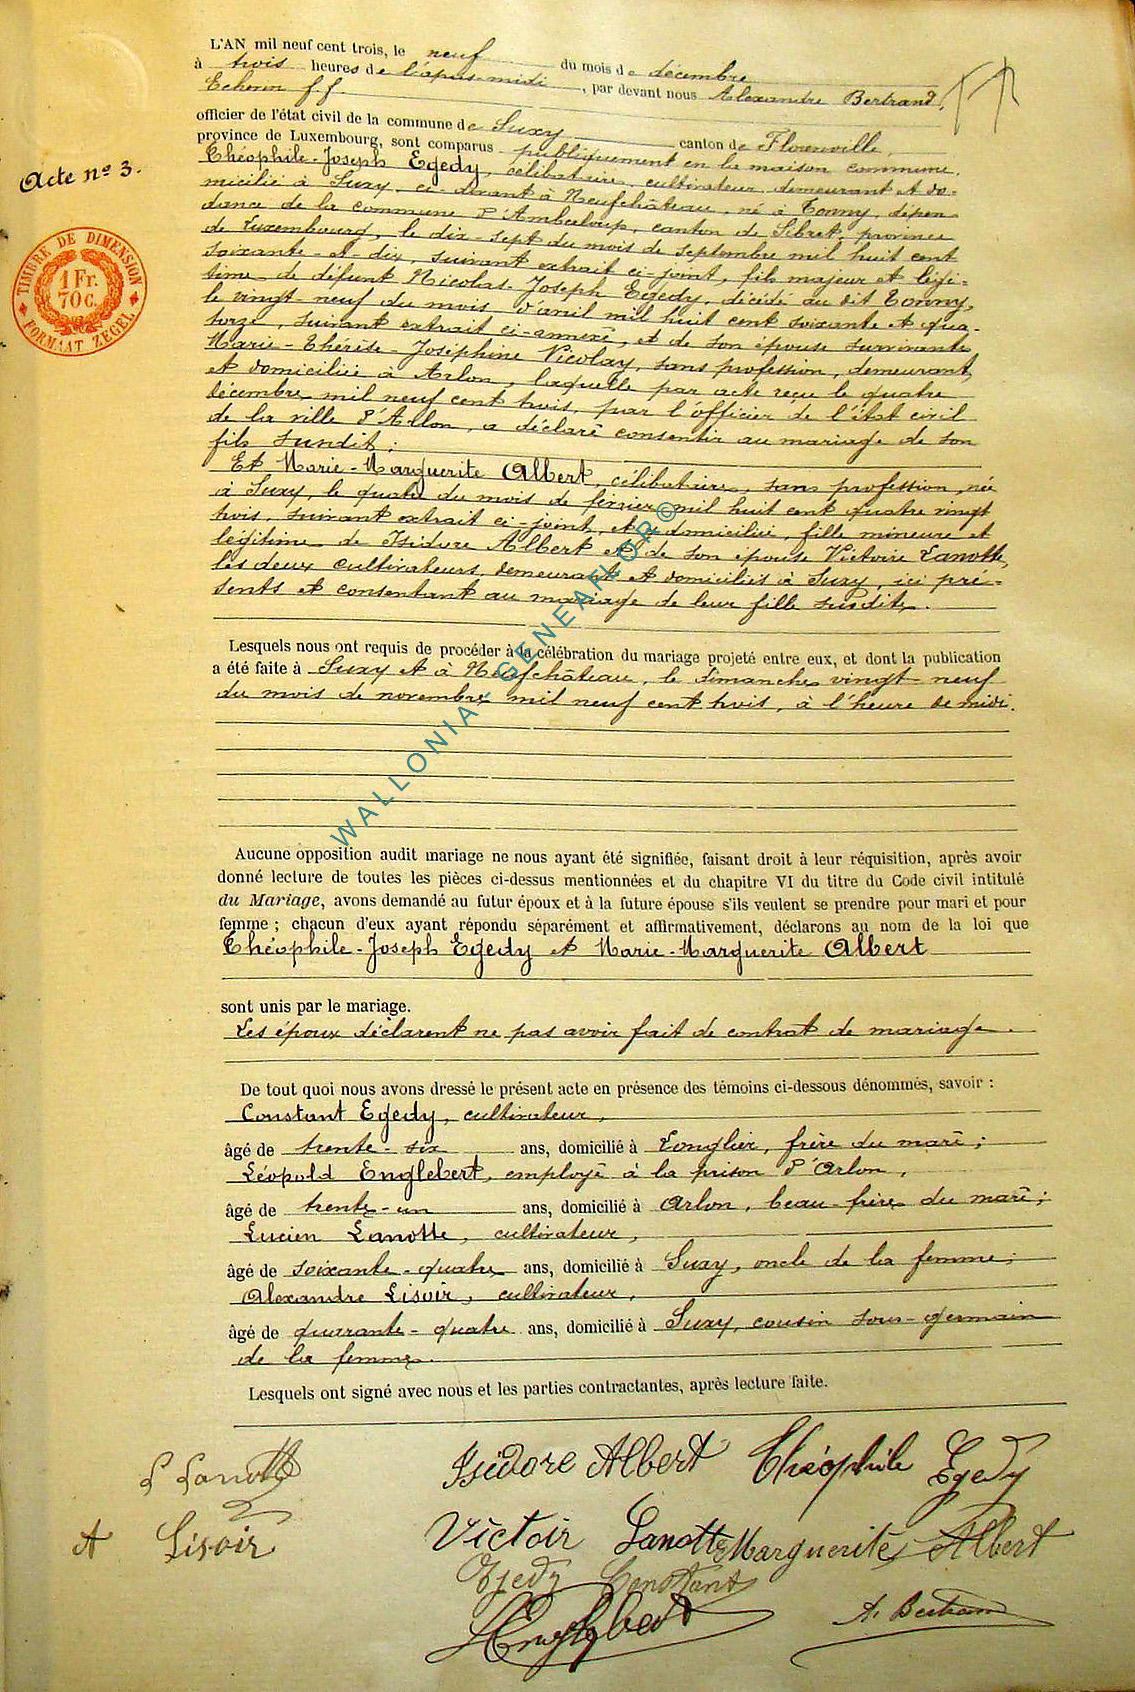 L'AN mil neuf cent trois, le neuf du mois de décembre
à trois heures de l'après-midi, par devant nous Alexandre Bertrand,
Echevin ff.
officier de l'état civil de la commune de Suxy canton de Florenville,
province de Luxembourg, sont comparus publiquement en la maison commune.
Acte nº 3.
Théophile-Joseph Egedy, célibataire, cultivateur, demeurant et do-
micilié à Suxy, ci-devant à Neufchâteau, né à Tonny, dépen-
dance de la commune d'Amberloup, canton de Sibret, province
de Luxembourg, le dix-sept du mois de septembre mil huit cent
soixante-et-dix, suivant extrait ci-joint, fils majeur et légi-
time de défunt Nicolas-Joseph Egedy, décédé au dit Tonny,
le vingt-neuf du mois d'avril mil huit cent soixante et qua-
torze, suivant extrait ci-annexé, et de son épouse survivante
Marie-Thérèse-Joséphine Nicolay, sans profession, demeurant
et domiciliée à Arlon, laquelle par acte reçu le quatre
décembre mil neuf cent trois, par l'officier de l'état civil
de la ville d'Allon, a déclaré consentir au mariage de son
fils susdit;
Et Marie-Marguerite Albert, célibataire, sans profession, née
à Suxy, le quatre du mois de février mil huit cent quatre vingt
trois, suivant extrait ci-joint, et y domiciliée, fille mineure et
légitime de Isidore Albert et de son épouse Victoire Lanotte,
les deux cultivateurs, demeurant et domiciliés à Suxy, ici pré-
sents et consentant au mariage de leur fille susdite.
Lesquels nous ont requis de procéder à la célébration du mariage projeté entre eux, et dont la publication
a été faite à Suxy et à Neufchâteau, le dimanche vingt neuf
du mois de novembre mil neuf cent trois, à l'heure de midi.
TIMBRE DE DIMENSION
1 Fr.
70 C.
FORMAAT ZEGEL
WALLONIA-GENEAFLOR©
Aucune opposition audit mariage ne nous ayant été signifiée, faisant droit à leur réquisition, après avoir
donné lecture de toutes les pièces ci-dessus mentionnées et du chapitre VI du titre du Code civil intitulé
du Mariage, avons demandé au futur époux et à la future épouse s'ils veulent se prendre pour mari et pour
femme ; chacun d'eux ayant répondu séparément et affirmativement, déclarons au nom de la loi que
Théophile-Joseph Egedy et Marie-Marguerite Albert
sont unis par le mariage.
Les époux déclarent ne pas avoir fait de contrat de mariage.
De tout quoi nous avons dressé le présent acte en présence des témoins ci-dessous dénommés, savoir :
Constant Egedy, cultivateur,
âgé de trente-six ans, domicilié à Longlier, frère du marié;
Léopold Englebert, employé à la prison d'Arlon,
âgé de trente-un ans, domicilié à Arlon, beau-frère du marié;
Lucien Lanotte, cultivateur,
âgé de soixante-quatre ans, domicilié à Suxy, oncle de la femme;
Alexandre Lisoir, cultivateur,
âgé de quarante-quatre ans, domicilié à Suxy, cousin sous-germain
de la femme.
Lesquels ont signé avec nous et les parties contractantes, après lecture faite.
L Lanotte Isidore Albert Théophile Egedy
A Lisoir Victoir Lanotte Marguerite Albert
Egedy Constant
L Englebert A. Bertrand